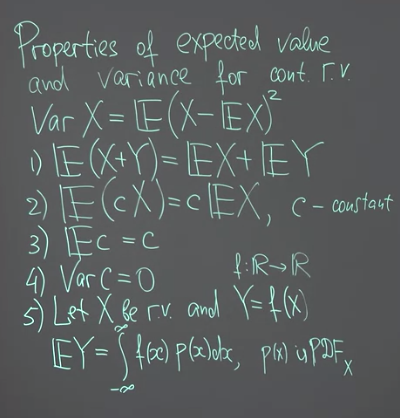 Properties of expected value
and variance for cont. r.v.
Var X = 𝔼(X-𝔼X)²
1) 𝔼(X+Y) = 𝔼X + 𝔼Y
2) 𝔼(cX) = c𝔼X, c - constant
3) 𝔼c = c
4) Var c = 0
f: ℝ → ℝ
5) Let X be r.v. and Y = f(X)
𝔼Y = ∫_{-∞}^{∞} f(x) p(x)dx, p(x) is PDF_X